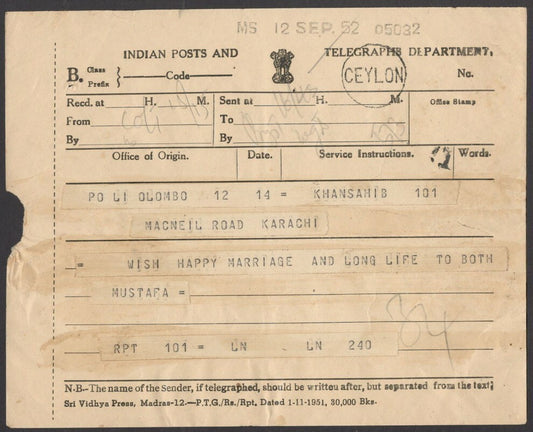 MS 12 SEP. 52 05032
INDIAN POSTS AND TELEGRAPHS DEPARTMENT.
B. Class Prefix } Code CEYLON No.
Recd. at H. M. Sent at H. M. Office Stamp
From To
By By
Office of Origin. Date. Service Instructions. Words.
PO LI OLOMBO 12 14 = KHANSAHIB 101
MACNEIL ROAD KARACHI
= WISH HAPPY MARRIAGE AND LONG LIFE TO BOTH
MUSTAFA =
84
RPT 101 = LN LN 240
N.B-The name of the Sender, if telegraphed, should be written after, but separated from the text;
Sri Vidhya Press, Madras-12.—P.T.G./Rs./Rpt. Dated 1-11-1951, 30,000 Bks.